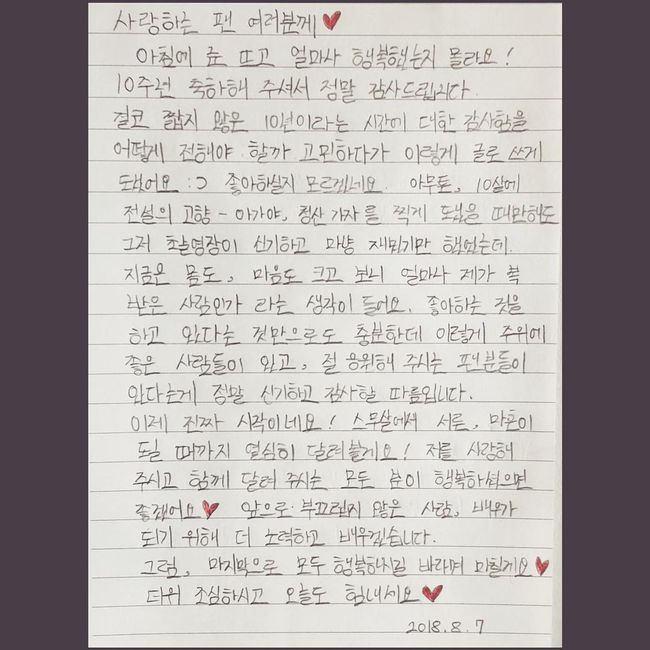 사랑하는 팬 여러분께 ♥
아침에 눈 뜨고 얼마나 행복했는지 몰라요!
10주년 축하해 주셔서 정말 감사드립니다.
결코 짧지 않은 10년이라는 시간에 대한 감사함을
어떻게 전해야 할까 고민하다가 이렇게 글로 쓰게
됐어요 :) 좋아하실지 모르겠네요. 아무튼, 10살에
전설의 고향 - 아가야, 청산가자를 찍게 됐을 때만해도
그저 촬영장이 신기하고 마냥 재밌기만 했었는데.
지금은 몸도, 마음도 크고 보니 얼마나 제가 복
받은 사람인가 라는 생각이 들어요. 좋아하는 것을
하고 있다는 것만으로도 충분한데 이렇게 주위에
좋은 사람들이 있고, 절 응원해 주시는 팬분들이
있다는게 정말 신기하고 감사할 따름입니다.
이제 진짜 시작이네요! 스무살에서 서른, 마흔이
될 때까지 열심히 달려볼게요! 저를 사랑해
주시고 함께 달려 주시는 모두 분이 행복하셨으면
좋겠어요♥ 앞으로 부끄럽지 않은 사람, 배우가
되기 위해 더 노력하고 배우겠습니다.
그럼, 마지막으로 모두 행복하시길 바라며 마칠게요♥
더위 조심하시고 오늘도 힘내세요♥
2018. 8. 7